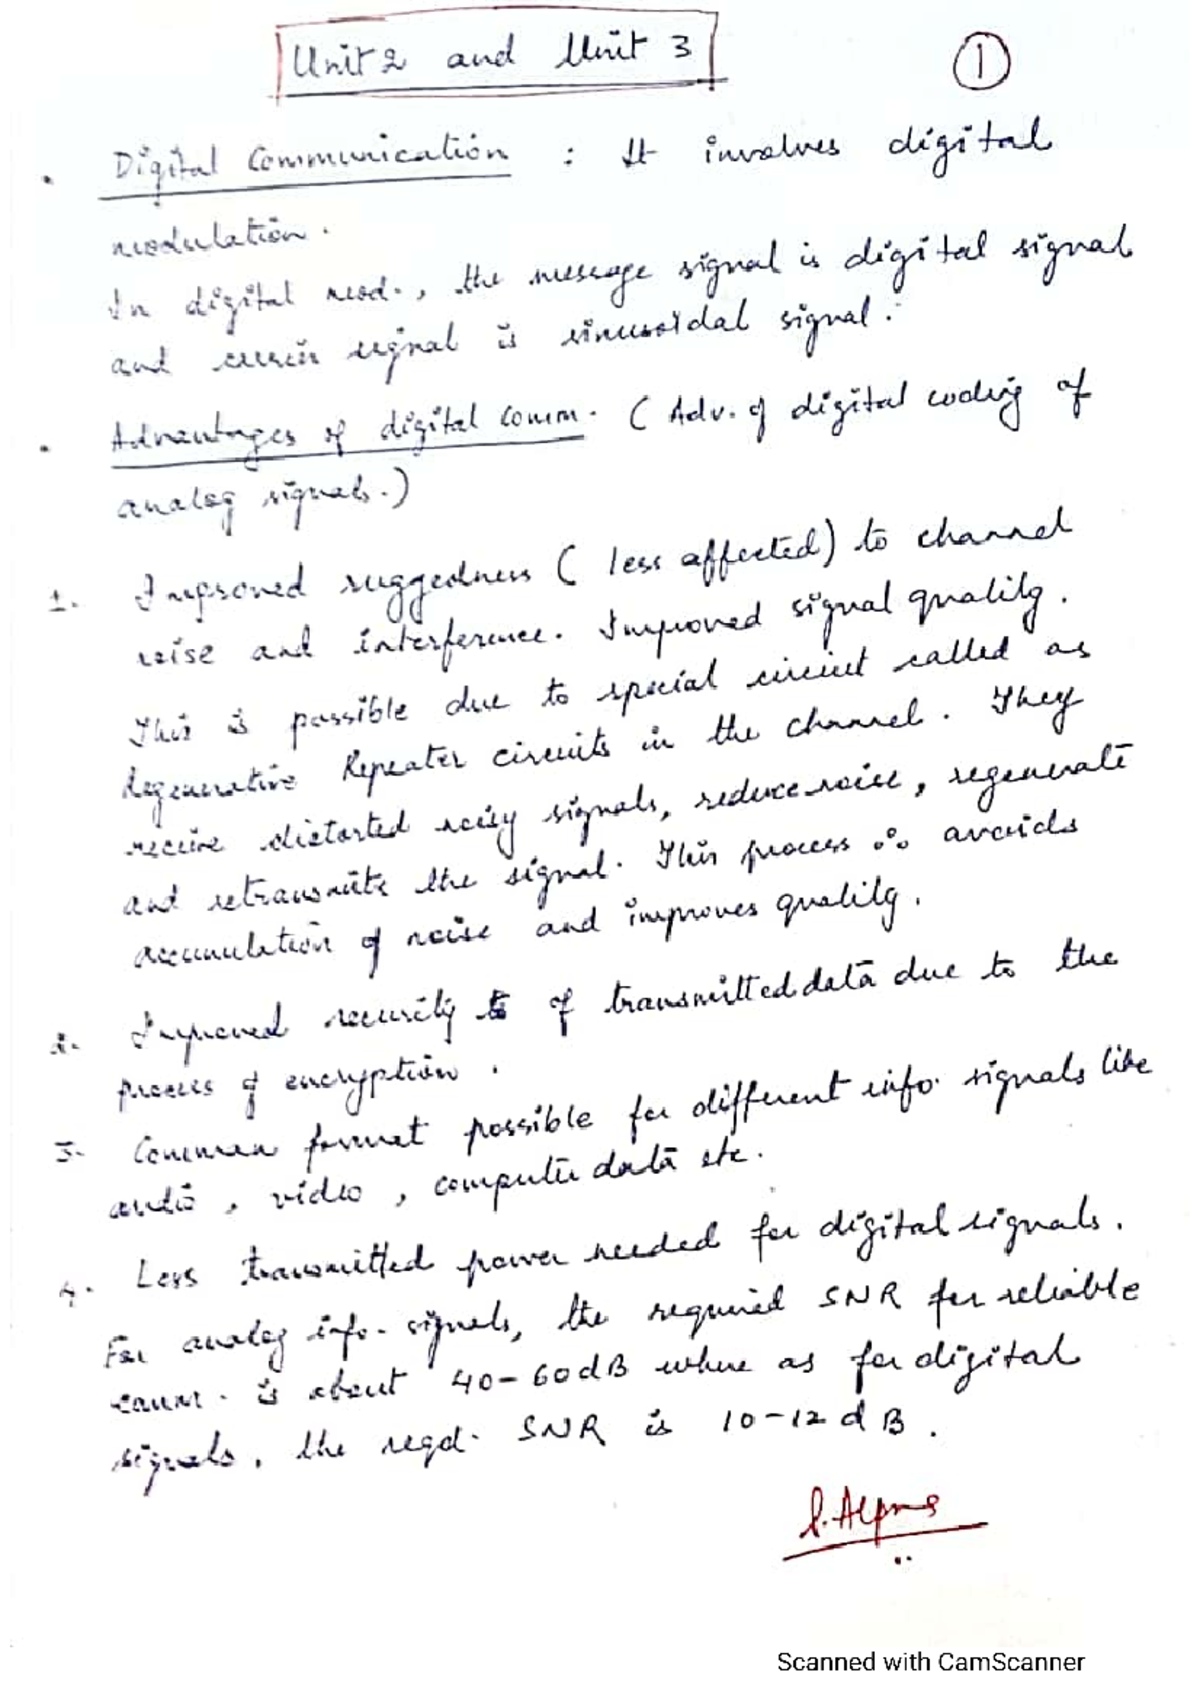 Unit 2 and Unit 3
1
• Digital Communication : It involves digital
modulation.
In digital mod., the message signal is digital signal
and carrier signal is sinusoidal signal.
• Advantages of digital comm. (Adv. of digital coding of
analog signals.)
1. Improved ruggedness (less affected) to channel
noise and interference. Improved signal quality.
This is possible due to special circuit called as
Regenerative Repeater circuits in the channel. They
recieve distorted noisy signals, reduce noise, regenerate
and retransmits the signal. This process ∴ avoids
accumulation of noise and improves quality.
2. Improved security of transmitted data due to the
process of encryption.
3. Common format possible for different info. signals like
audio, video, computer data etc.
4. Less transmitted power needed for digital signals.
For analog info. signals, the required SNR for reliable
comm. is about 40-60dB where as for digital
signals, the reqd. SNR is 10-12 dB.
Scanned with CamScanner